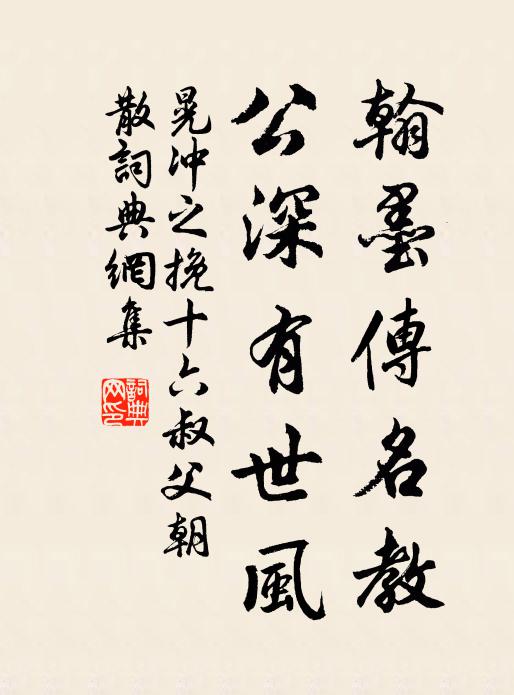 翰墨傳名教
公深有世風
晁沖之挽十六叔父朝
散詞典網集
詞典網印